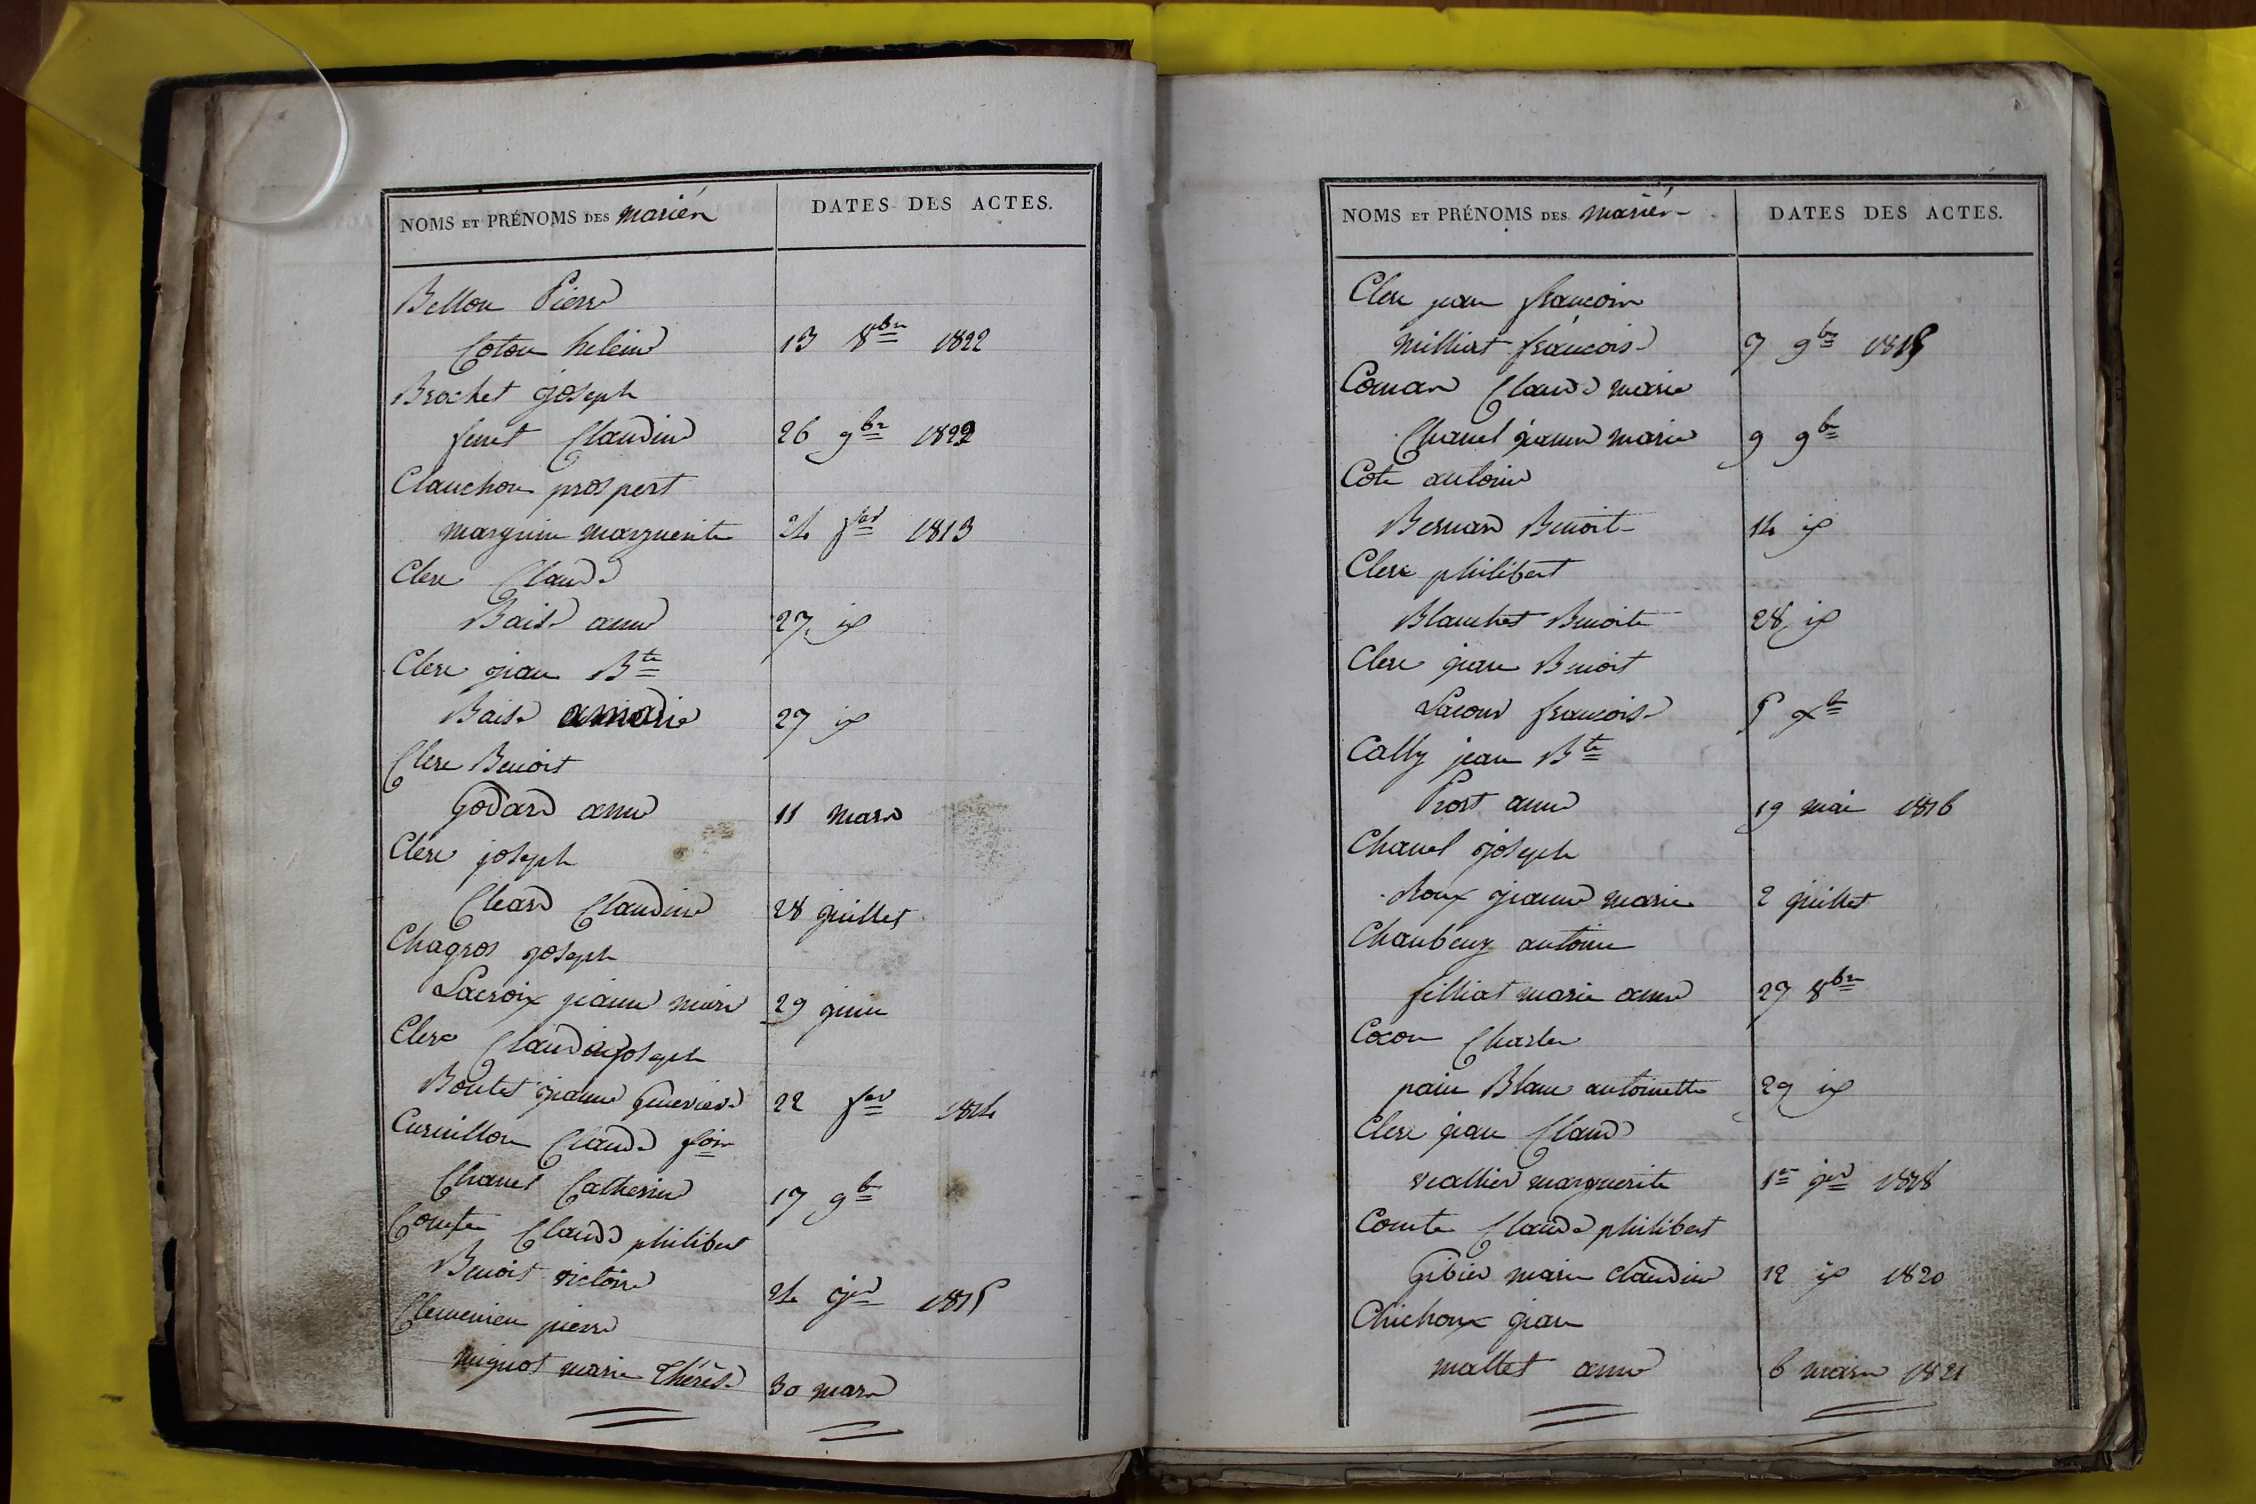 NOMS ET PRÉNOMS DES mariés
DATES DES ACTES.
Bellon Pierre
Coton heleine 13 8bre 1822
Brochet joseph
feuret Claudine 26 9bre 1822
Clauchon prospert
marguin marguerite 24 fer 1813
Clerc Claude
Baise anne 27 id
Clerc jean Bte
Baise marie 27 id
Clerc Benoit
Godard anne 11 mars
Clerc joseph
Cleard Claudine 28 juillet
Chagros joseph
Lacroix jeanne marie 29 juin
Clerc Claude joseph
Boutet jeanne Genevieve 22 fer 1814
Curvillon Claude fois
Chanel Catherine 17 9b
Comte Claude philibert
Benoit victoire 24 jer 1815
Clemencien pierre
mignot marie Thérèse 30 mars
NOMS ET PRÉNOMS DES mariés
DATES DES ACTES.
Clerc jean francois
Milliat francoise 7 9bre 1815
Coman Claude marie
Chanel jeanne marie 9 9b
Cote antoine
Bernard Benoite 14 id
Clerc philibert
Blanchet Benoite 28 id
Clerc jean Benoit
Lacour francoise 5 Xb
Cally jean Bte
Prost anne 19 mai 1816
Chanel joseph
Roux jeanne marie 2 juillet
Chambeux antoine
filliat marie anne 27 8bre
Cocon Charles
pain Blanc antoinette 29 id
Clerc jean Claude
vallier marguerite 1er jer 1818
Comte Claude philibert
Gibier marie claudine 12 id 1820
Chichoux jean
mallet anne 6 mars 1821